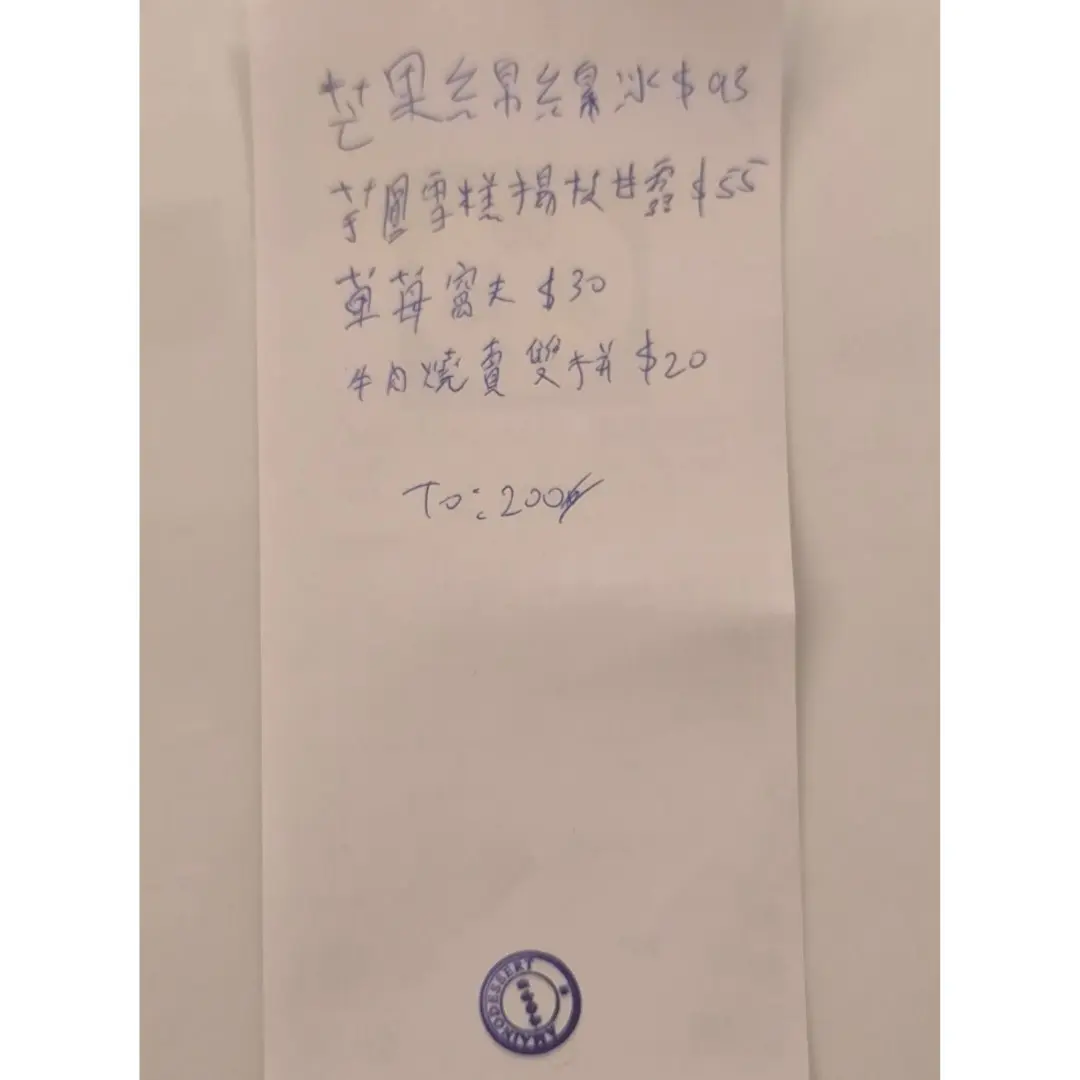 芒果綿綿冰 $93
芋圓雪糕楊枝甘露 $55
草莓窩夫 $30
牛肉燒賣雙拼 $20
To: 200
AMAINODESSERT